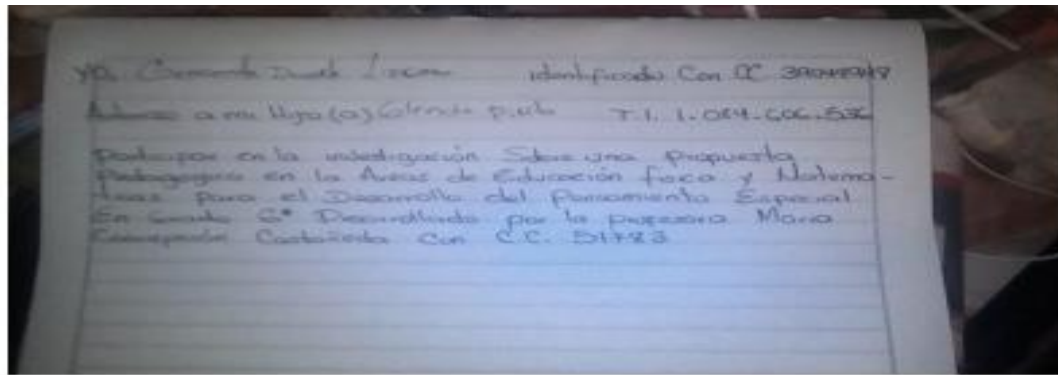 Yo, identificado con CC
a mi Hijo(a) T.I. 1.084.606.536
Participar en la investigación Sobre una Propuesta
Pedagogica en la Areas de Educación fisica y Matema-
ticas para el Desarrollo del Pensamiento Espacial
En Grado 6° Desarrollado por la profesora Maria
Concepción Castañeda Con C.C. 51783